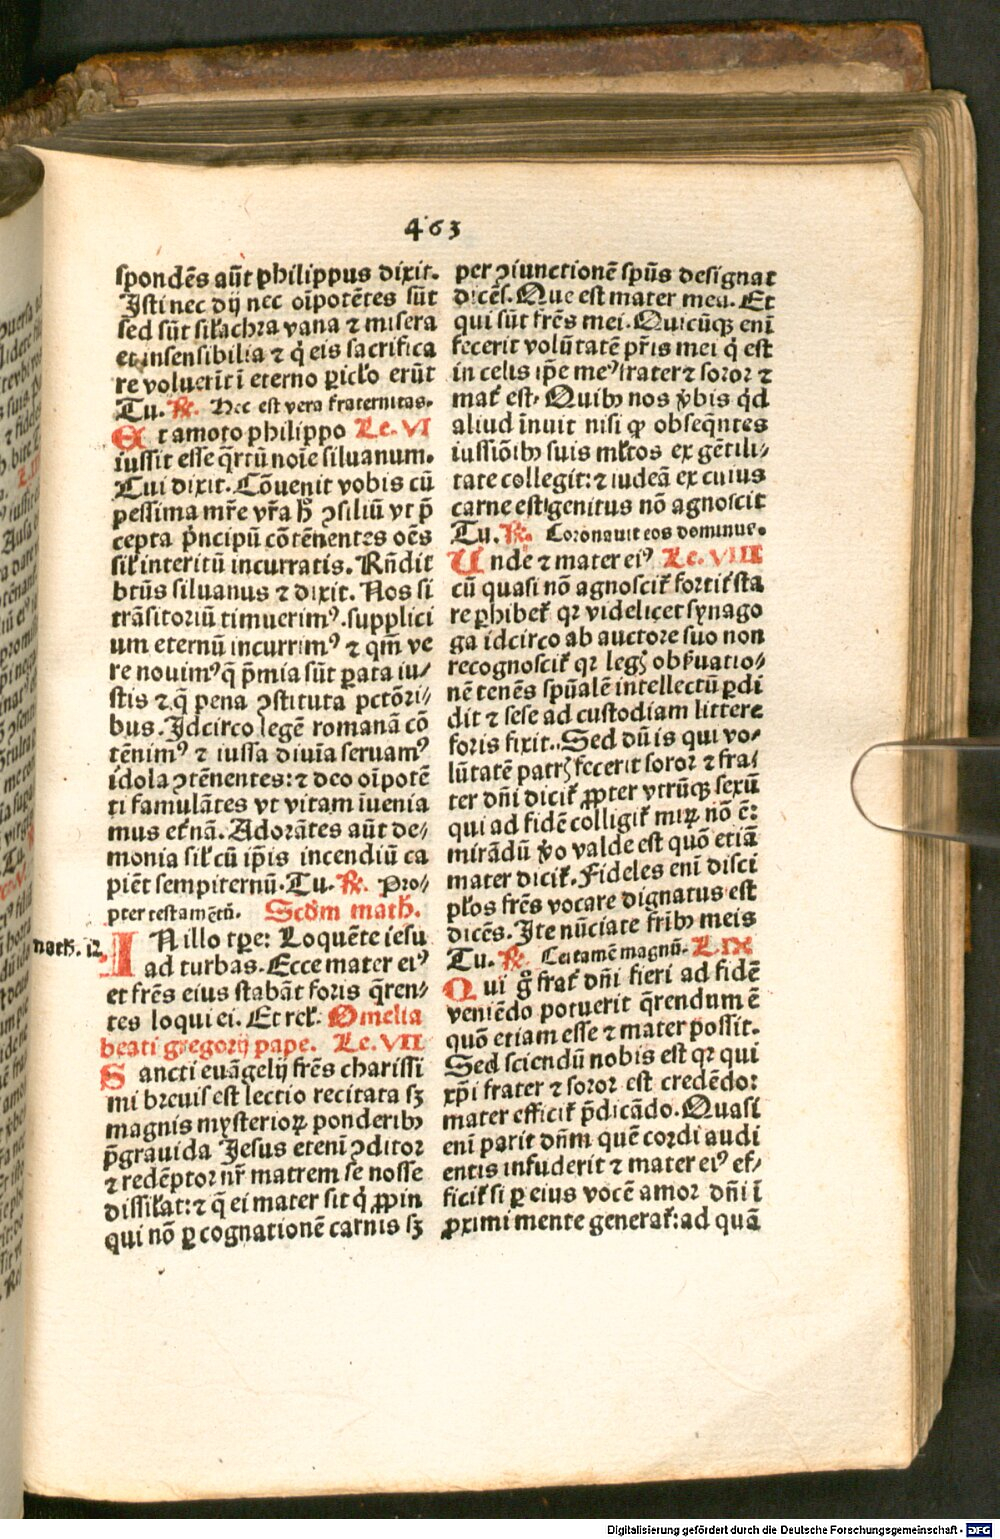 463
spondēs aūt philippus dixit.
Isti nec dij nec oīpotētes sūt
sed sūt siłachra vana ⁊ misera
et insensibilia ⁊ q̇ eis sacrifica
re voluerīt ī eterno ꝑicło erūt
Tu. ℟. Hec est vera fraternitas.
Et amoto philippo Le. VI
iussit esse q̄rtū noīe siluanum.
Cui dixit. Cōuenit vobis cū
pessima mr̄e vr̄a h̄ ꝯsiliū vt p̄
cepta p̍ncipū cōtēnentes oēs
sił interitū incurratis. Rn̄dit
btūs siluanus ⁊ dixit. Nos si
trāsitoriū timuerimꝰ supplici
um eternū incurrimꝰ ⁊ qm̄ ve
re nouimꝰ q̄ p̄mia sūt ꝑata iu⸗
stis ⁊ q̄ pena ꝯstituta pctōri⸗
bus. Idcirco legē romanā cō
tēnimꝰ ⁊ iussa diuīa seruamꝰ
idola ꝯtēnentes: ⁊ deo oīpotē
ti famulātes vt vitam inuenia
mus et̄nā. Adorātes aūt de⸗
monia sił cū ip̄is incendiū ca
piēt sempiternū. Tu. ℟. Pro⸗
pter testamētū. Scd̄m math̄.
math̄. 12
IN illo tp̄e: Loquēte iesu
ad turbas. Ecce mater eiꝰ
et frēs eius stabāt foris q̄ren⸗
tes loqui ei. Et reł. Omelia
beati gregorij pape. Le. VII
Sancti euāgelij frēs charissi
mi breuis est lectio recitata sꝫ
magnis mysterioꝝ ponderibꝰ
p̄grauida Jesus etenī ꝯditor
⁊ redēptor nr̄ matrem se nosse
dissiłat: ⁊ q̄ ei mater sit q̇ ꝓpin
qui nō ꝑ cognationē carnis sꝫ
per ꝯiunctionē spūs designat
dicēs. Que est mater mea. Et
qui sūt frēs mei. Quicūqꝫ enī
fecerit volūtatē pr̄is mei q̇ est
in celis ip̄e meꝰ frater ⁊ soror ⁊
mat̄ est. Quibꝰ nos v̄bis q̇d
aliud īnuit nisi ꝙ obseq̄ntes
iussiōibꝰ suis młtos ex gētili⸗
tate collegit: ⁊ iudeā ex cuius
carne est genitus nō agnoscit
Tu. ℟. Coronauit eos dominus.
Unde ⁊ mater eiꝰ Le. VIII
cū quasi nō agnoscit̄ foris sta
re ꝑhibet̄ qꝛ videlicet synago
ga idcirco ab auctore suo non
recognoscit̄ qꝛ legꝭ obẜuatio⸗
nē tenēs spūalē intellectū ꝑdi
dit ⁊ sese ad custodiam littere
foris fixit. Sed dū is qui vo⸗
lūtatē patrꝭ fecerit soror ⁊ fra⸗
ter dn̄i dicit̄ ꝓpter vtrūqꝫ sexū
qui ad fidē colligit̄ miꝝ nō ē:
mirādū v̄o valde est quō etiā
mater dicit̄. Fideles enī disci
płos frēs vocare dignatus est
dicēs. Ite nūciate frībꝰ meis
Tu. ℟. Certamē magnū. L. IX
Qui g̊ frat̄ dn̄i fieri ad fidē
veniēdo potuerit q̄rendum ē
quō etiam esse ⁊ mater possit.
Sed sciendū nobis est qꝛ qui
xp̄i frater ⁊ soror est credēdo:
mater efficit̄ p̄dicādo. Quasi
enī parit dn̄m quē cordi audi
entis infuderit ⁊ mater eiꝰ ef⸗
ficit̄ si ꝑ eius vocē amor dn̄i ī
ꝓximi mente generat̄: ad quā
Digitalisierung gefördert durch die Deutsche Forschungsgemeinschaft - DFG